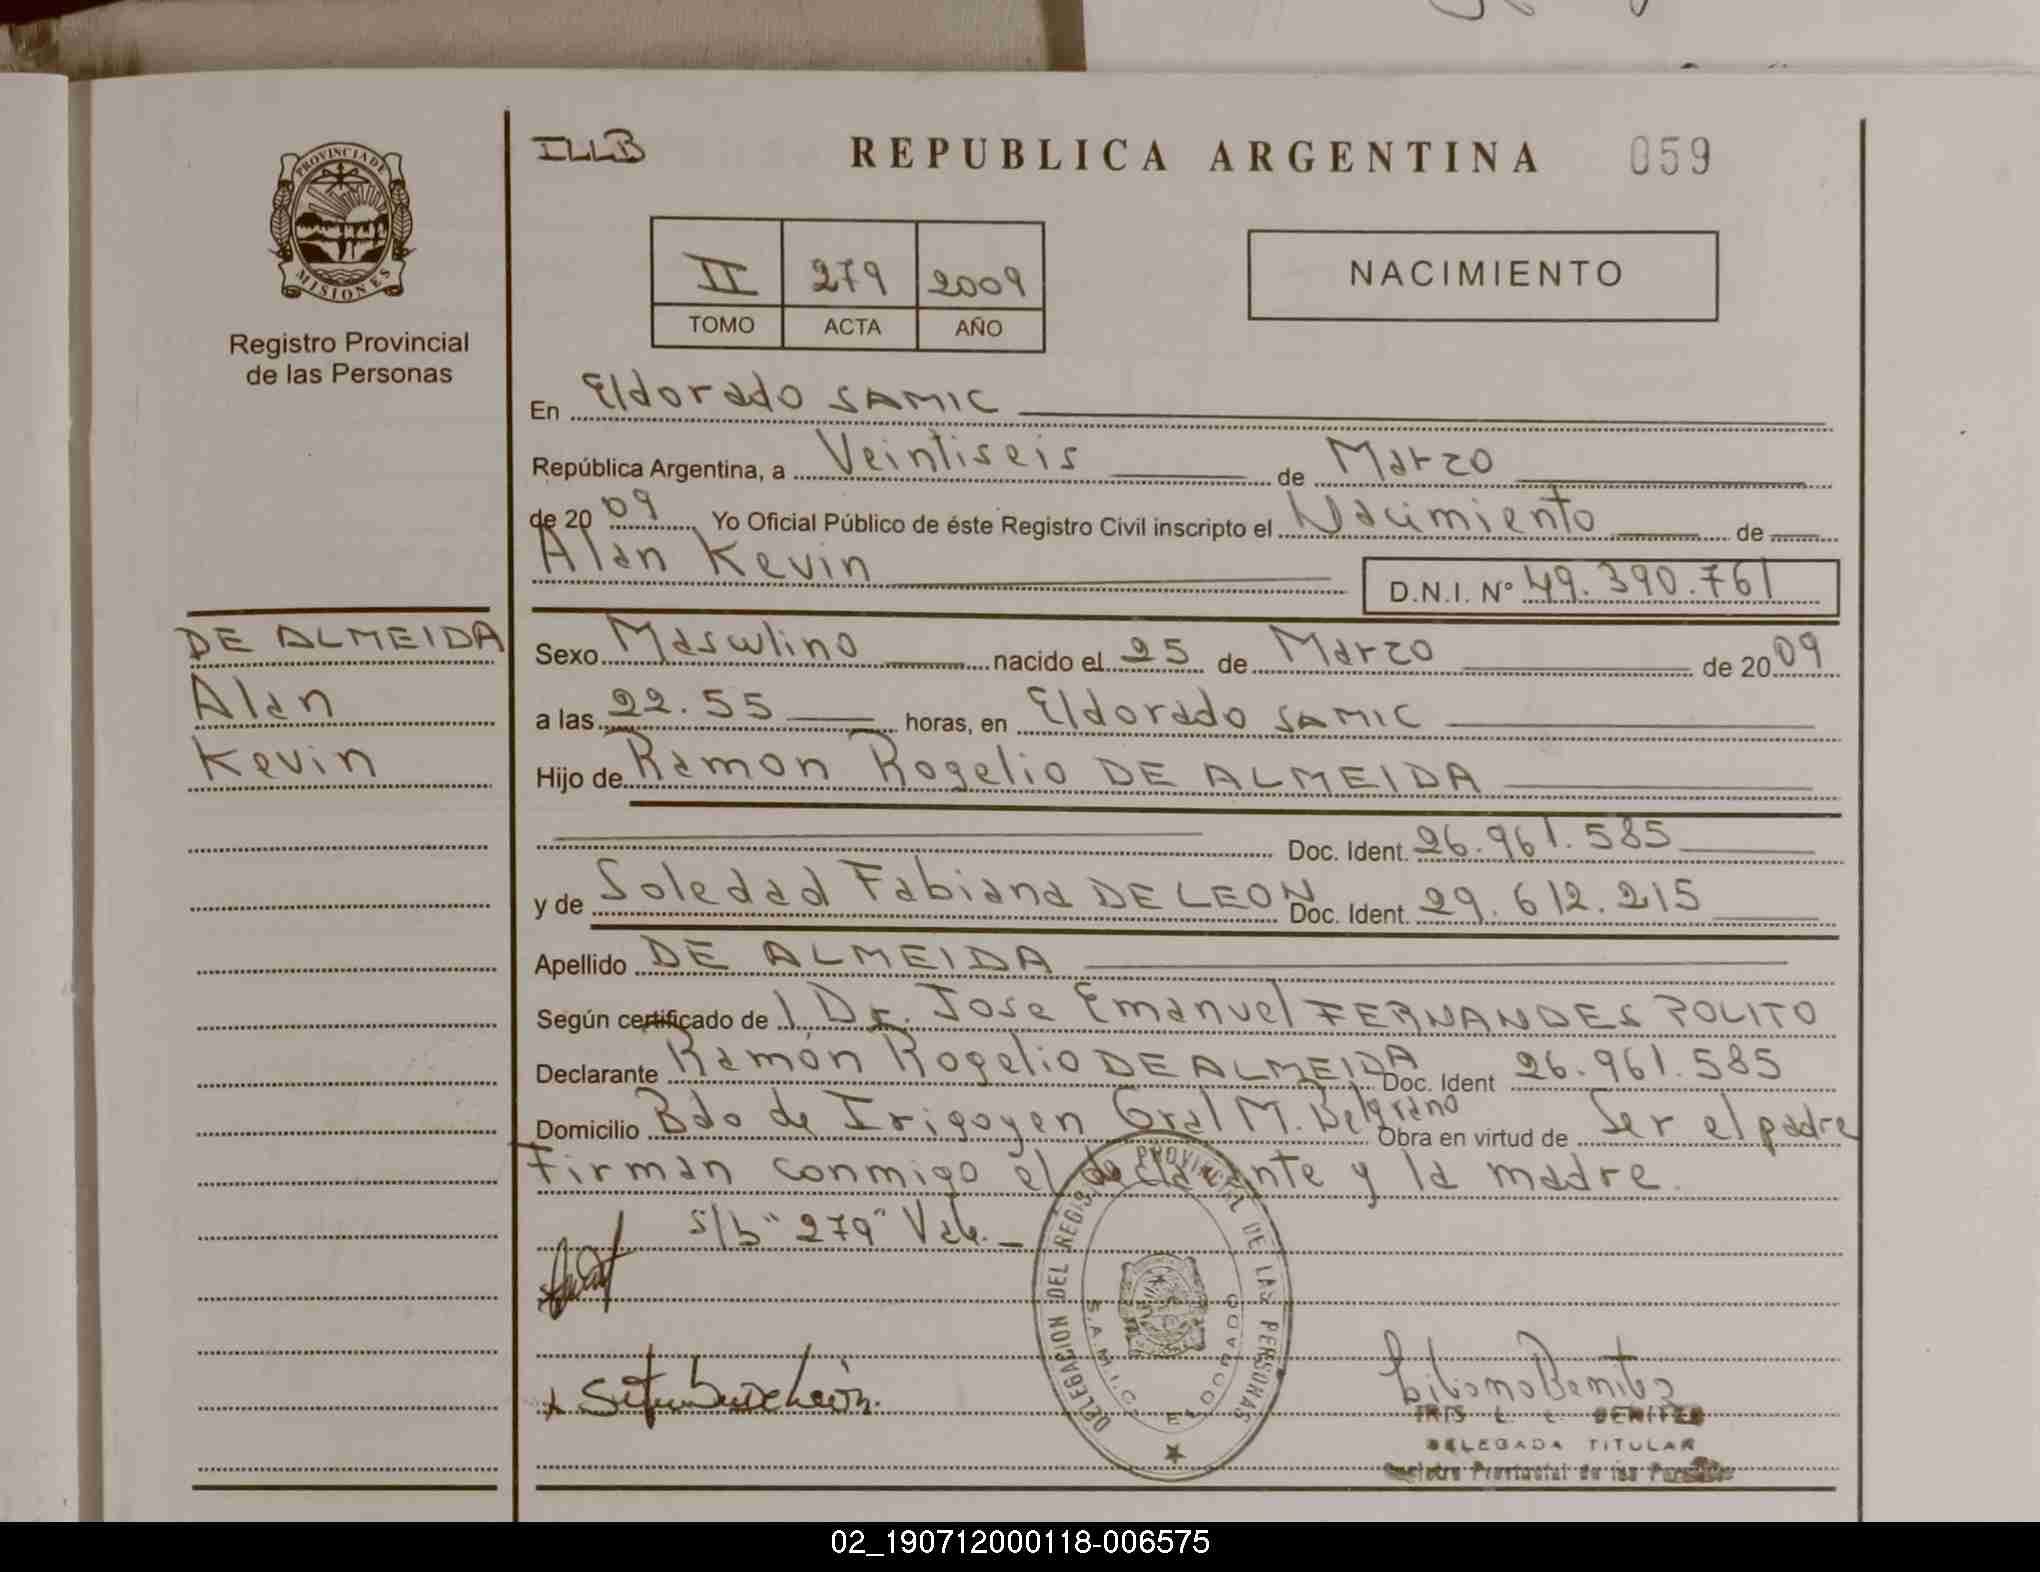 PROVINCIA DE
MISIONES
Registro Provincial
de las Personas
ILLB
REPUBLICA ARGENTINA 059
II 279 2009
TOMO ACTA AÑO
NACIMIENTO
En Eldorado SAMIC
República Argentina, a Veintiseis de Marzo
de 20 09 Yo Oficial Público de éste Registro Civil inscripto el Nacimiento de
Alan Kevin
D.N.I. Nº 49.390.761
DE ALMEIDA
Alan
Kevin
Sexo Masculino nacido el 25 de Marzo de 20 09
a las 22.55 horas, en Eldorado SAMIC
Hijo de Ramon Rogelio DE ALMEIDA
Doc. Ident. 26.961.585
y de Soledad Fabiana DE LEON Doc. Ident. 29.612.215
Apellido DE ALMEIDA
Según certificado de 1 Dr. Jose Emanuel FERNANDES POLITO
Declarante Ramón Rogelio DE ALMEIDA Doc. Ident 26.961.585
Domicilio Bdo de Irigoyen Gral M. Belgrano Obra en virtud de Ser el padre
Firman conmigo el declarante y la madre.
s/b "279" Vale.
DELEGACION DEL REGISTRO PROVINCIAL DE LAS PERSONAS
S.A.M.I.C. ELDORADO
IRIS L. L. BENITEZ
DELEGADA TITULAR
Registro Provincial de las Personas
02_190712000118-006575